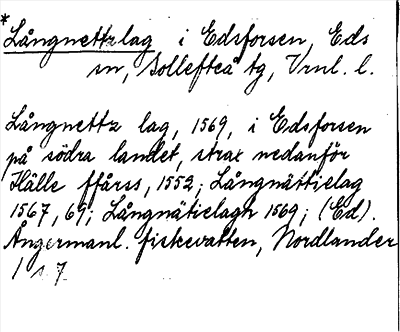 *
Långnettzlag i Edsforsen, Eds
sn, Sollefteå tg, Vrnl. l.
Långnettz lag, 1569, i Edsforsen
på södra landet, strax nedanför
Hälle ffårss, 1552; Långnättielag
1567, 69; Långnätielagh 1569; (Ed).
Ångermanl. fiskevatten, Nordlander
1 s. 7